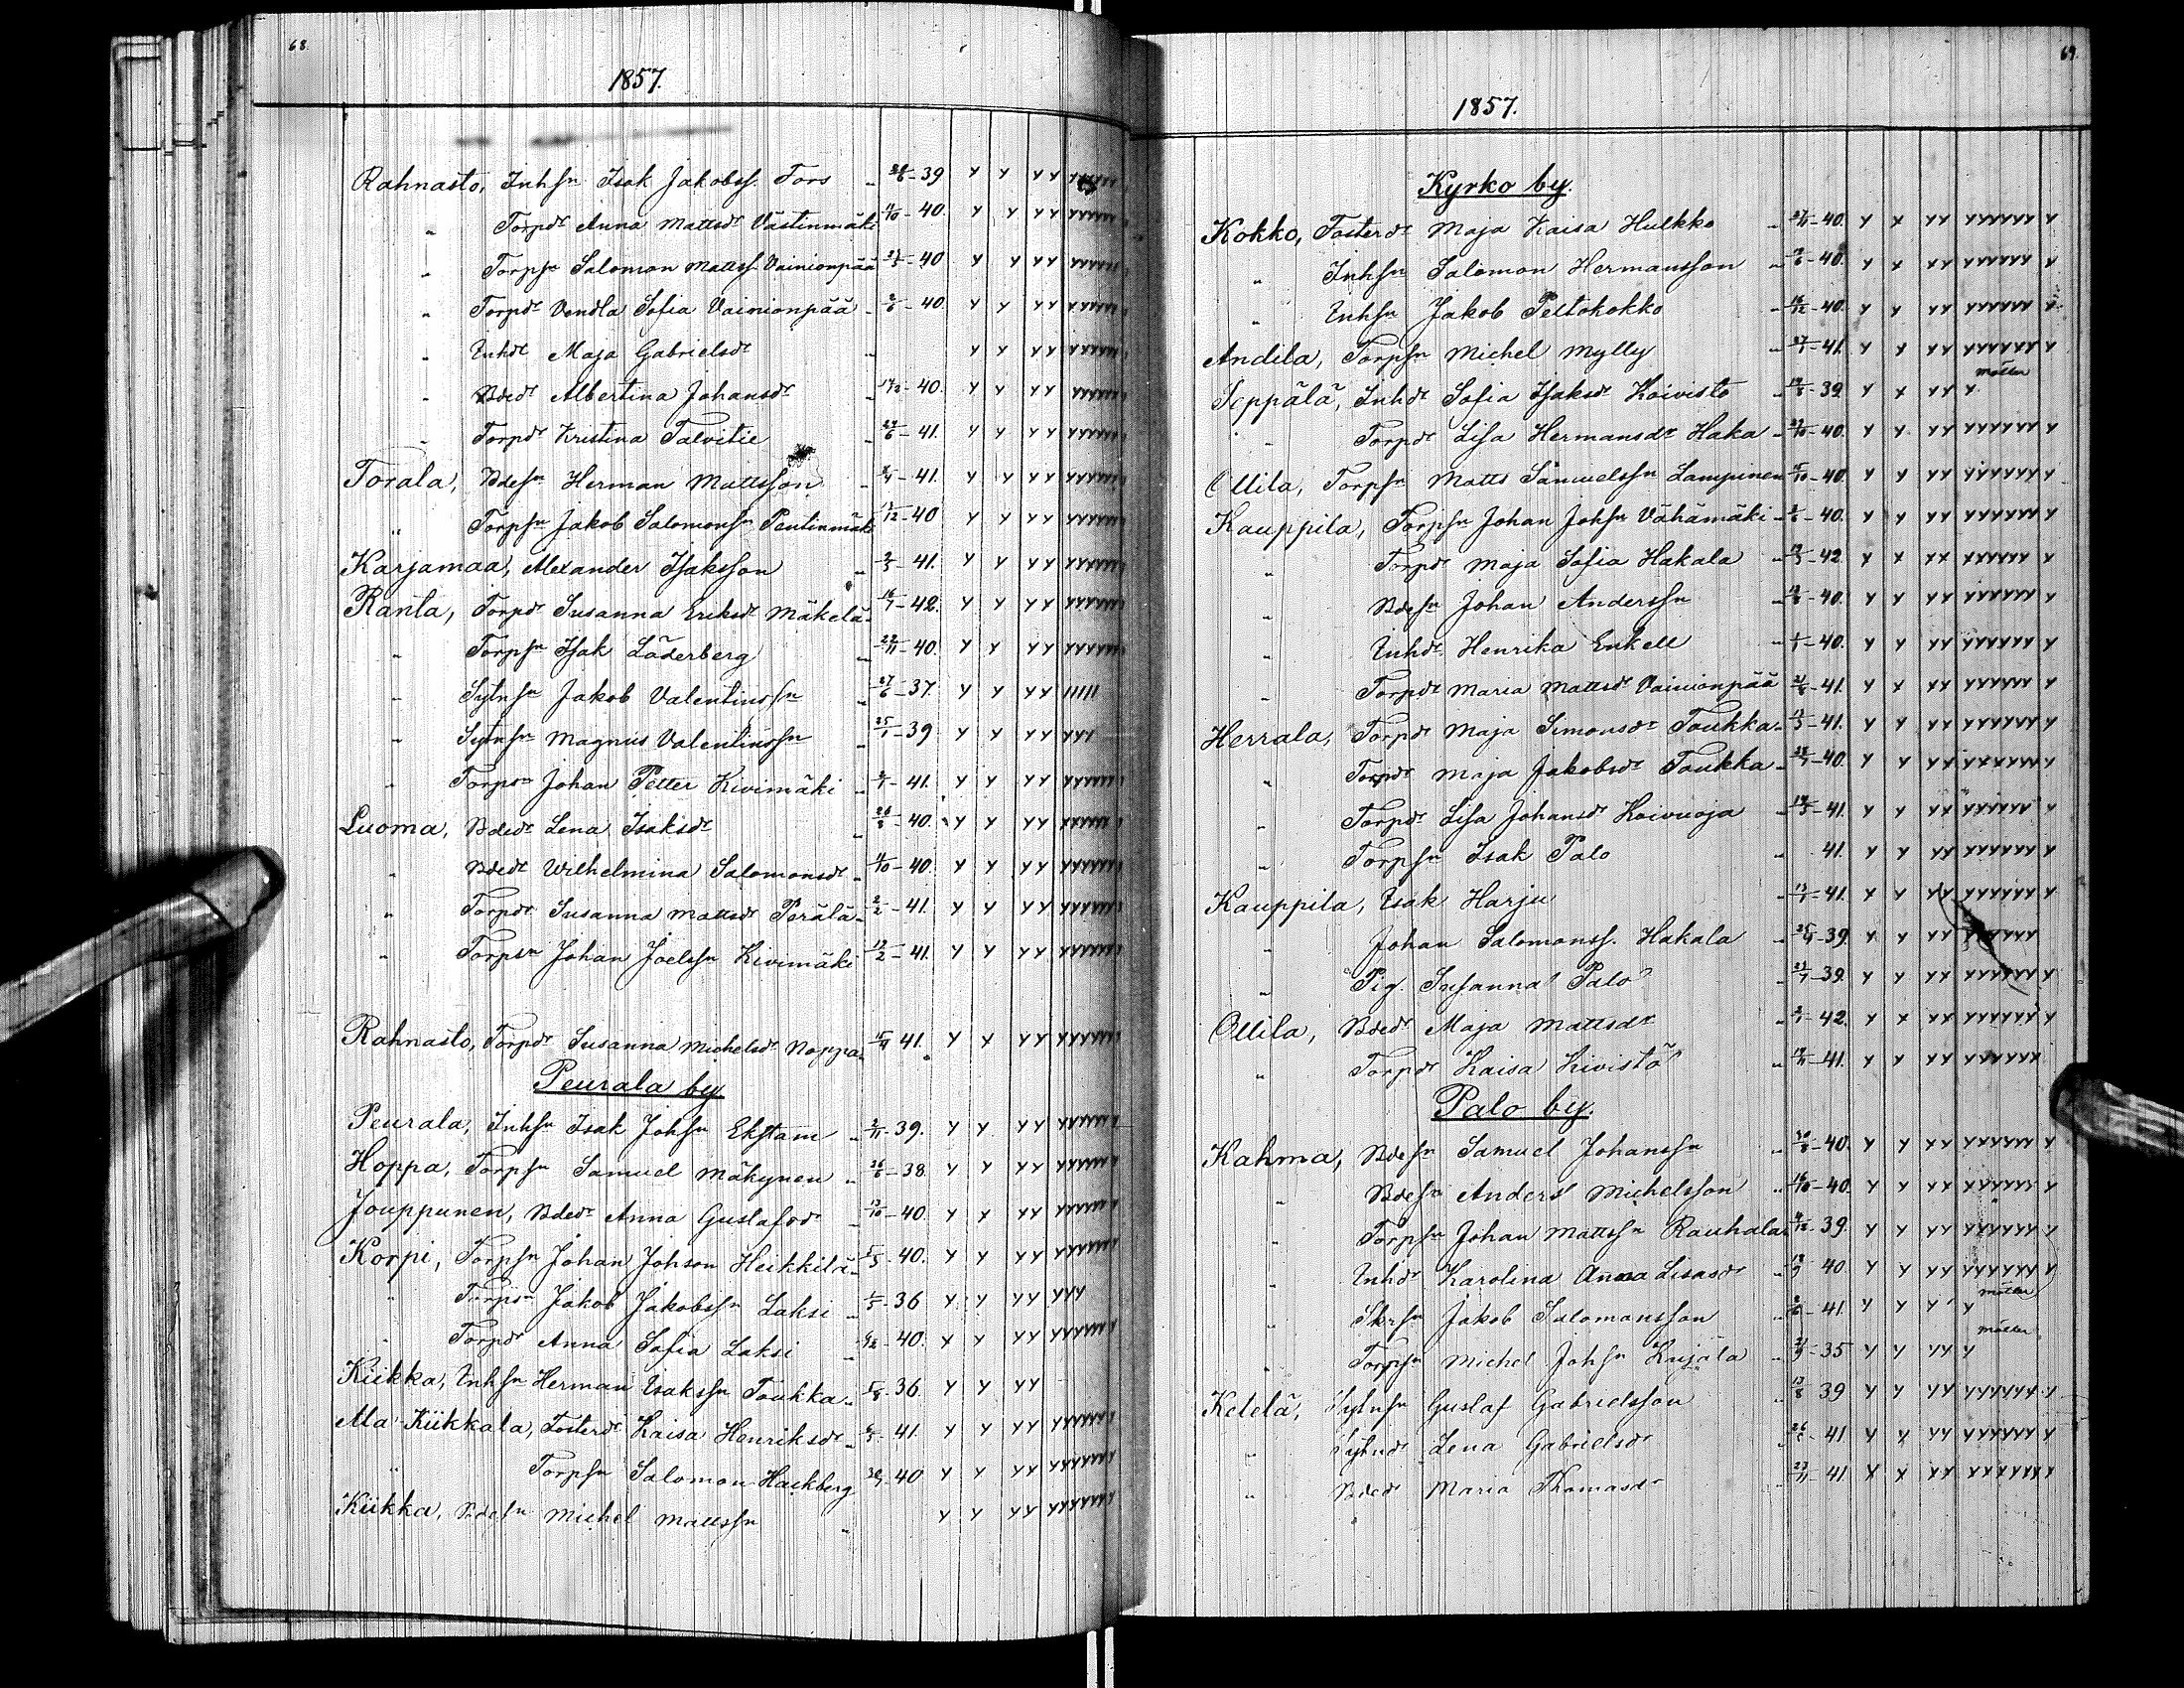 68.
1857.
Rahnasto, Inhsn Isak Jakobss. Fors „ 28/6-39 Y Y YY YYYYYY
„ Torpdr Anna Mattsdr Västinmäki 11/10-40. Y Y YY YYYYYY
„ Torpsn Salomon Mattss. Vainionpää 23/3-40 Y Y YY YYYYYY
„ Torpdr Vendla Sofia Vainionpää 2/6-40. Y Y YY YYYYYY
„ Inhdr Maja Gabrielsdr „ Y Y YY YYYYYY
„ Bdedr Albertina Johansdr 14/2-40. Y Y YY YYYYYY
„ Torpdr Kristina Talvitie 24/6-41. Y Y YY YYYYYY
Torala, Bdesn Herman Mattsson -41. Y Y YY YYYYYY
„ Torpsn Jakob Salomonsn Pentinmäki 17/12-40 Y Y YY YYYYYY
Karjamaa, Alexander Isaksson „ 2/5-41. Y Y YY YYYYYY
Ranta, Torpdr Susanna Eriksdr Mäkelä 16/7-42. Y Y YY YYYYYY
„ Torpsn Isak Läderberg „ 22/11-40. Y Y YY YYYYYY
„ Sytnsn Jakob Valentinssn „ 27/6-37. Y Y YY IIIII
„ Sytnsn Magnus Valentinssn „ 25/1-39 Y Y YY YYY
„ Torpsn Johan Petter Kivimäki -41. Y Y YY YYYYYY
Luoma, Bdedr Lena Isaksdr „ 26/8-40. Y Y YY YYYYYY
„ Bdedr Wilhelmina Salomonsdr 11/10-40. Y Y YY YYYYYY
„ Torpdr Susanna Mattsdr Perälä 2/2-41. Y Y YY YYYYYY
„ Torpsn Johan Joelssn Kivimäki 12/2-41. Y Y YY YYYYYY
Rahnasto, Torpdr Susanna Michelsdr Noppa 41. Y Y YY YYYYYY
Peurala by
Peurala, Inhsn Isak Johsn Ekstam „ 2/11-39. Y Y YY YYYYYY
Hoppa, Torpsn Samuel Mäkynen „ 26/6-38 Y Y YY YYYYYY
Jouppunen, Bdedr Anna Gustafsdr 13/10-40. Y Y YY YYYYYY
Korpi, Torpsn Johan Johson Heikkilä -40. Y Y YY YYYYYY
„ Torpsn Jakob Jakobssn Laksi „ -36 Y Y YY YYY
„ Torpdr Anna Sofia Laksi „ -40. Y Y YY YYYYYY
Kiikka, Inhsn Herman Isakssn Toukka -36. Y Y YY
Ala-Kiikkala, Fosterdr Kaisa Henriksdr -41. Y Y YY YYYYYY
„ Torpsn Salomon Hackberg -40 Y Y YY YYYYYY
Kiikka, Bdesn Michel Mattssn „ Y Y YY YYYYYY
69.
1857.
Kyrko by.
Kokko, Fosterdr Maja Kaisa Hulkko -40. Y Y YY YYYYYY Y
„ Inhsn Salomon Hermansson -40. Y Y YY YYYYYY Y
„ Inhsn Jakob Peltokokko 16/12-40. Y Y YY YYYYYY Y
Andila, Torpsn Michel Mylly 27/1-41. Y Y YY YYYYYY Y
Seppälä, Inhdr Sofia Isaksdr Koivisto -39 Y Y YY Y måller
„ Torpdr Lisa Hermansdr Haka 27/10-40. Y Y YY YYYYYY Y
Ollila, Torpsn Matts Samuelssn Lampinen -40. Y Y YY YYYYYY Y
Kauppila, Torpsn Johan Johsn Vähämäki -40. Y Y YY YYYYYY Y
„ Torpdr Maja Sofia Hakala -42 Y Y YY YYYYYY Y
„ Bdesn Johan Anderssn -40. Y Y YY YYYYYY Y
„ Inhdr Henrika Enkell -40. Y Y YY YYYYYY Y
„ Torpdr Maria Mattsdr Vainionpää -41. Y Y YY YYYYYY Y
Herrala, Torpdr Maja Simonsdr Toukka -41. Y Y YY YYYYYY Y
„ Torpdr Maja Jakobsdr Toukka -40. Y Y YY YYYYYY Y
„ Torpdr Lisa Johansdr Koivuoja -41. Y Y YY YYYYYY Y
„ Torpsn Isak Palo „ 41. Y Y YY YYYYYY Y
Kauppila, Isak Harju -41. Y Y YY YYYYYY Y
„ Johan Salomonss. Hakala -39. Y Y YY YYYYY
„ Pig. Susanna Palo -39. Y Y YY YYYYYY Y
Ollila, Bdedr Maja Mattsdr -42. Y Y YY YYYYYY Y
„ Torpdr Kaisa Kivistö „ -41. Y Y YY YYYYYY
Palo by.
Kahma, Bdesn Samuel Johanssn -40. Y Y YY YYYYYY Y
„ Bdesn Anders Michelsson „ -40. Y Y YY YYYYYY Y
„ Torpsn Johan Mattssn Rauhala -39. Y Y YY YYYYYY Y
„ Inhdr Karolina Anna Lisasdr 40. Y Y YY YYYYYY Y
„ Skrsn Jakob Salomonsson -41. Y Y Y Y måller
„ Torpsn Michel Johsn Kujala -35 Y Y YY Y måller
Ketelä, Sytnsn Gustaf Gabrielsson „ 13/8 39 Y Y YY YYYYYY Y
„ Sytndr Lena Gabrielsdr -41 Y Y YY YYYYYY Y
„ Bdedr Maria Thomasdr 23/11-41 Y Y YY YYYYYY Y